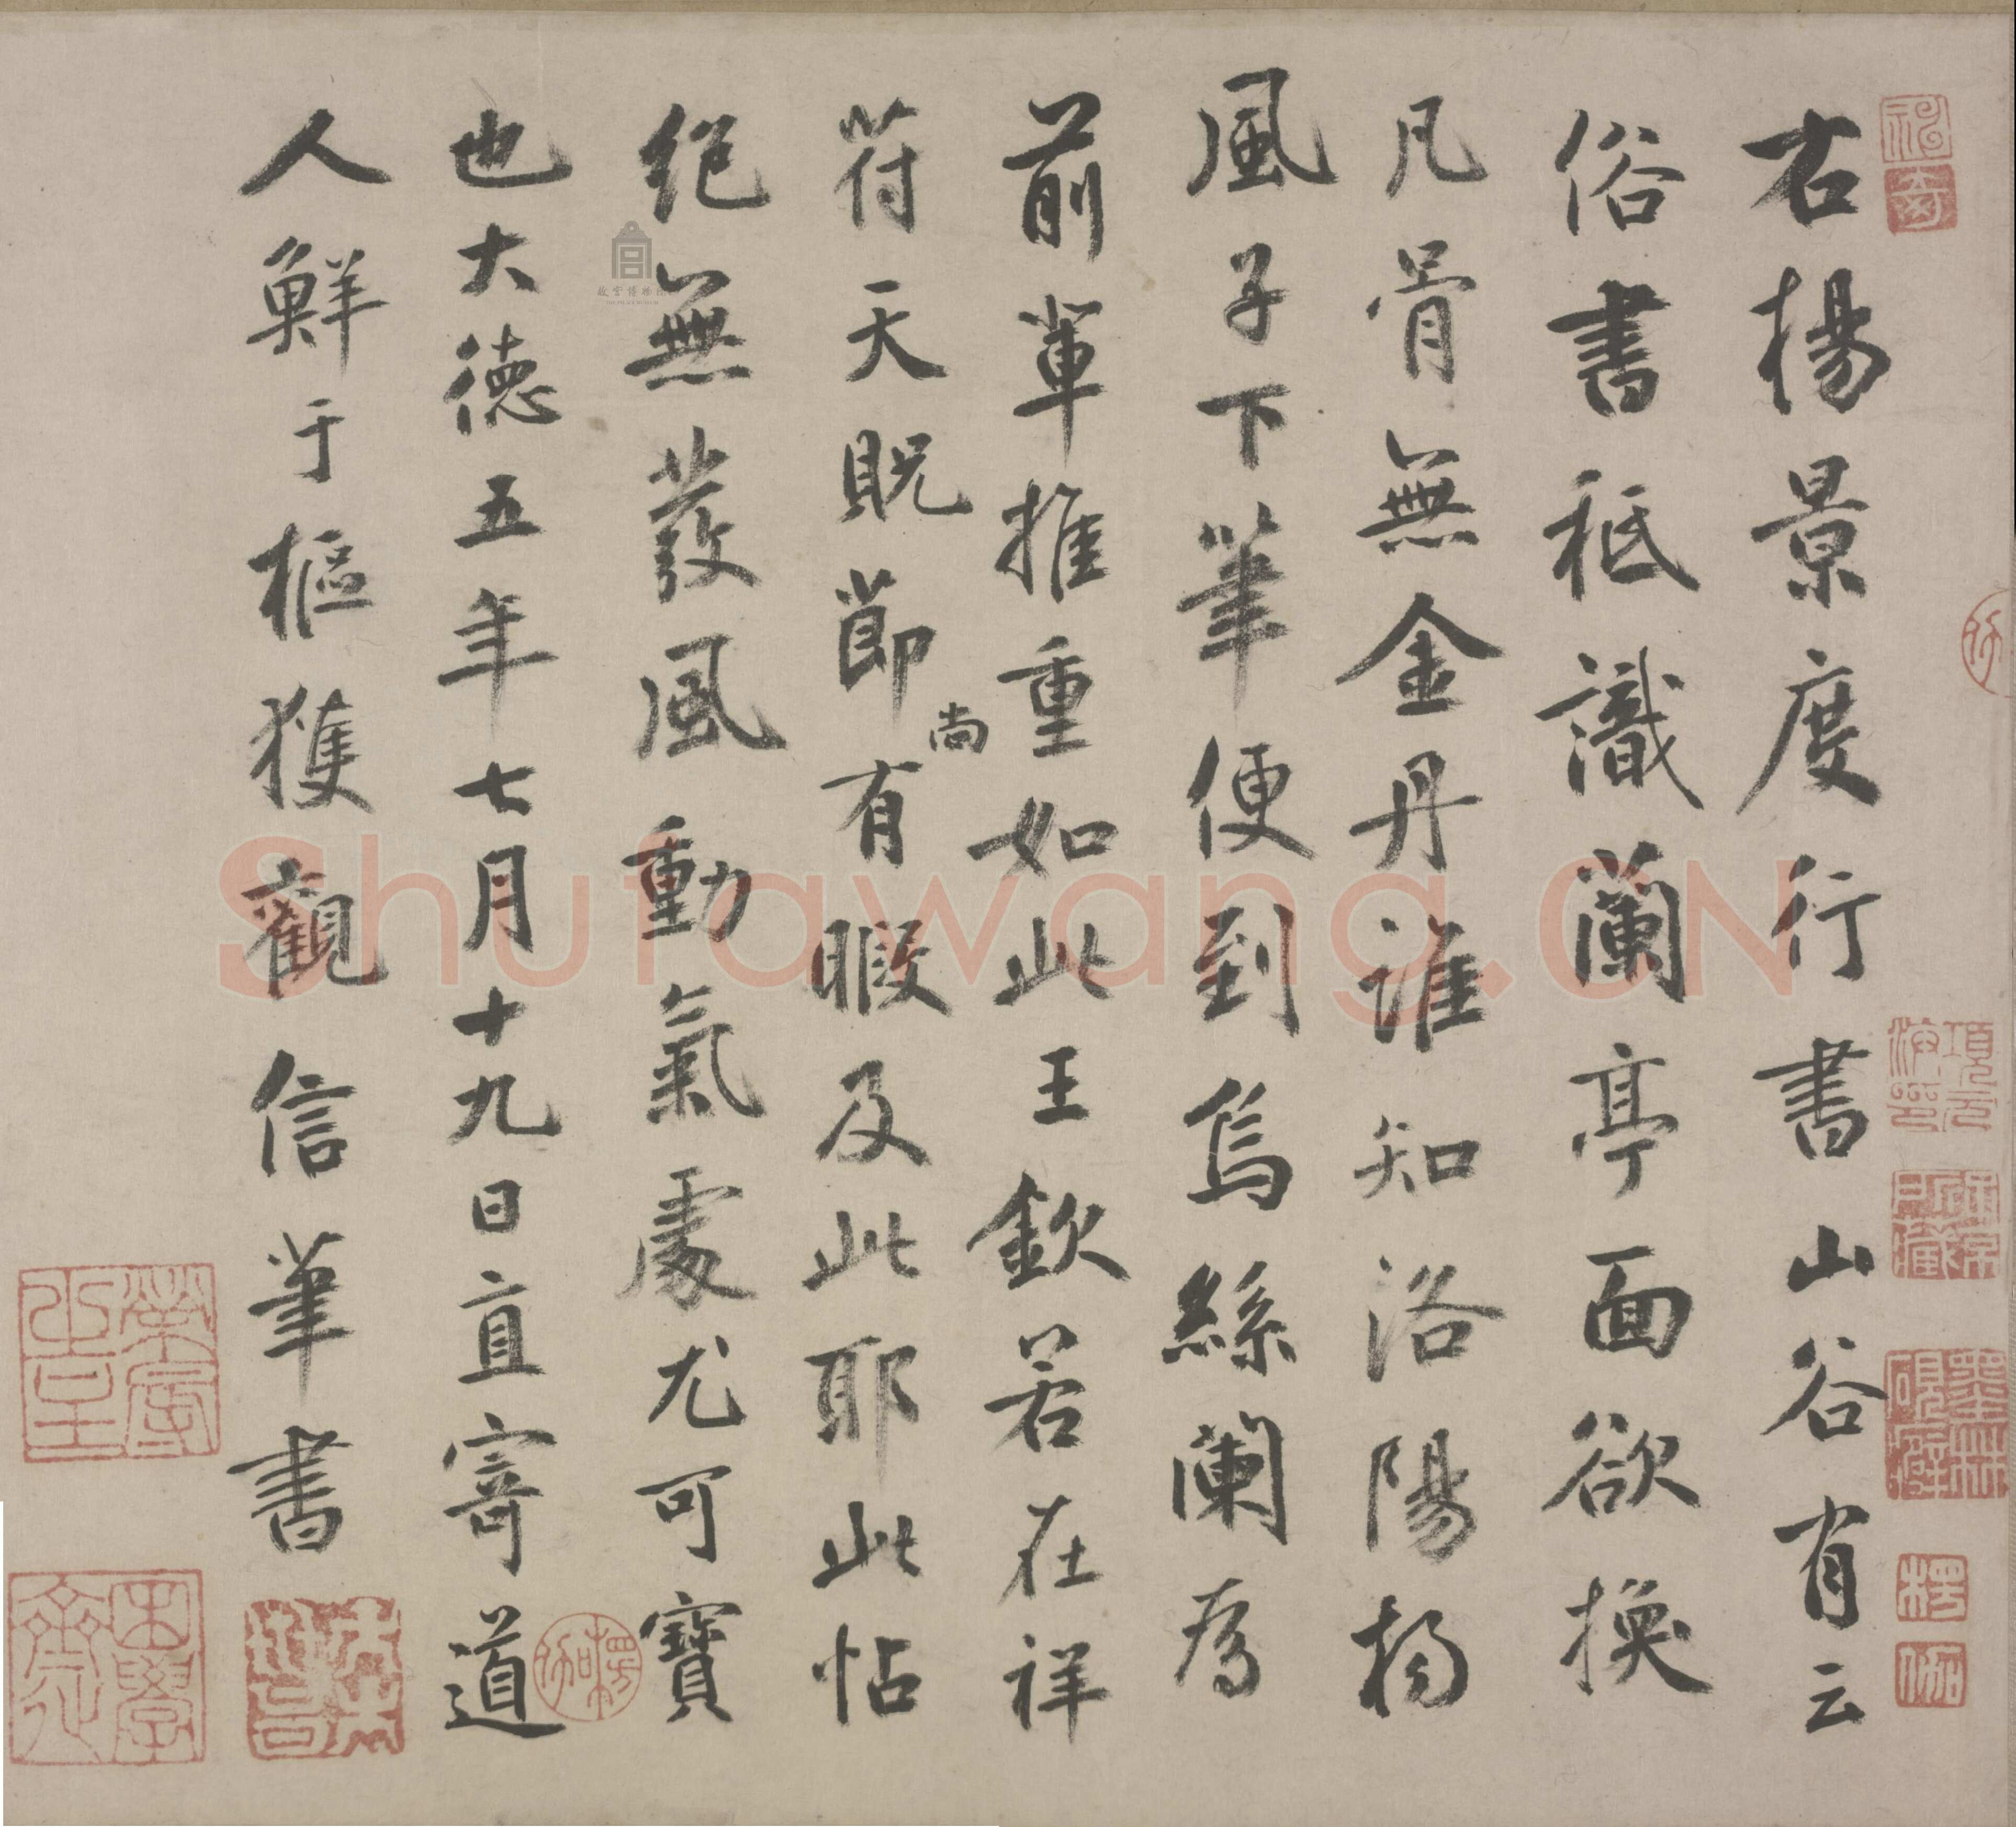 右楊景度行書山谷有云
俗書秪識蘭亭面欲換
凡骨無金丹誰知洛陽楊
風子下筆便到烏絲闌為
前輩推重如此王欽若在祥
符天貺節尚有暇及此耶此帖
絕無蕟風動氣處尤可寶
也大德五年七月十九日直寄道
人鮮于樞獲觀信筆書
Shufawang.CN
故宮博物院